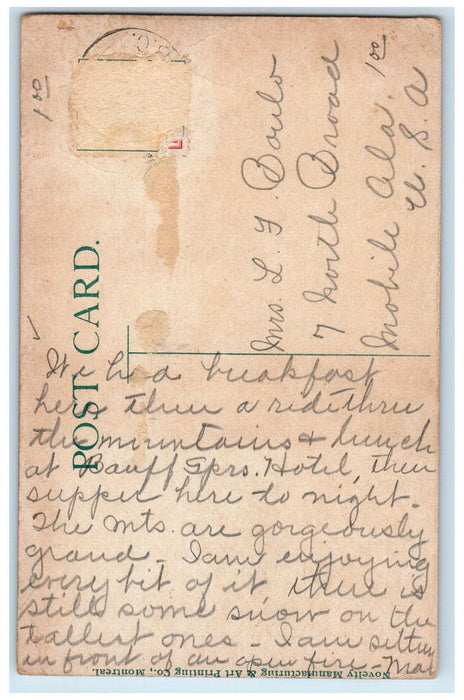 1 00
B.C.
POST CARD.
Mrs. L. F. Boulo
7 North Broad
Mobile Ala. 1 00
U. S. A
We had breakfast
here then a ride thru
the mountains & lunch
at Banff Sprs. Hotel, then
supper here to night.
The Mts. are gorgeously
grand - I am enjoying
every bit of it there is
still some snow on the
tallest ones - I am sitting
in front of an open fire -
Novelty Manufacturing & Art Printing Co., Montreal.